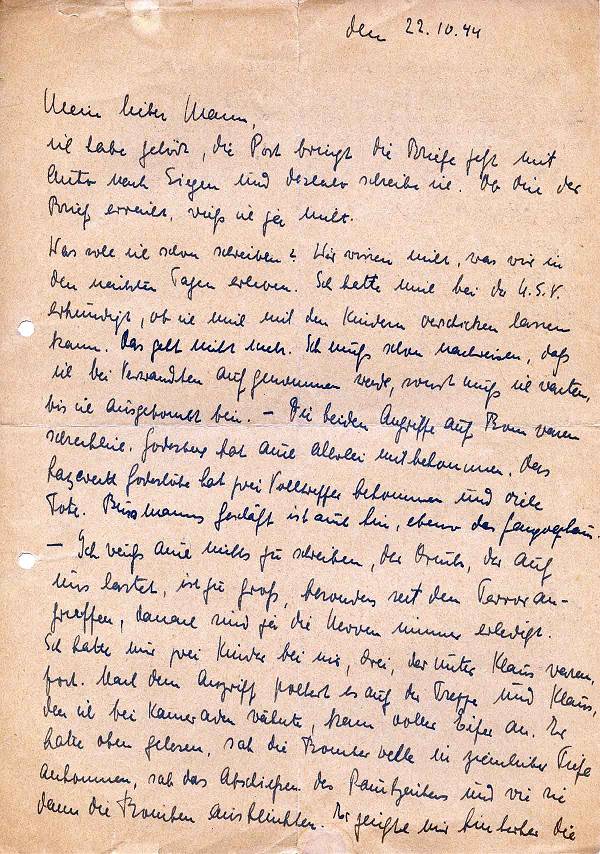 den 22.10.44
Mein lieber Mann,
ich habe gehört, die Post bringt die Briefe jetzt mit
Auto nach Siegen und deshalb schreibe ich. Ob Dich der
Brief erreicht, weiß ich ja nicht.
Was soll ich schon schreiben? Wir wissen nicht, was wir in
den nächsten Tagen erleben. Ich hatte mich bei der N.S.V.
erkundigt, ob ich mich mit den Kindern verschicken lassen
kann. Das geht nicht mehr. Ich muß schon nachweisen, daß
ich bei Verwandten aufgenommen werde, sonst muß ich warten,
bis ich ausgebombt bin. – Die beiden Angriffe auf Bonn waren
schrecklich. Godesberg hat auch allerlei mitbekommen. Das
Lazarett Godeshöhe hat zwei Volltreffer bekommen und viele
Tote. Bussmanns Geschäft ist auch hin, ebenso das
– Ich weiß auch nichts zu schreiben, der Druck, der auf
uns lastet, ist zu groß, besonders seit den Terroran-
griffen, danach sind ja die Nerven immer erledigt.
Ich hatte nur zwei Kinder bei mir, drei, darunter Klaus waren
fort. Nach dem Angriff poltert es auf der Treppe und Klaus,
den ich bei Kameraden wähnte, kam voller Eifer an. Er
hatte oben gelesen, sah die Bomber in ziemlicher Tiefe
ankommen, sah das Abschießen des und wie sie
dann die Bomben ausklinkten. Er zeigte mir hinterher die